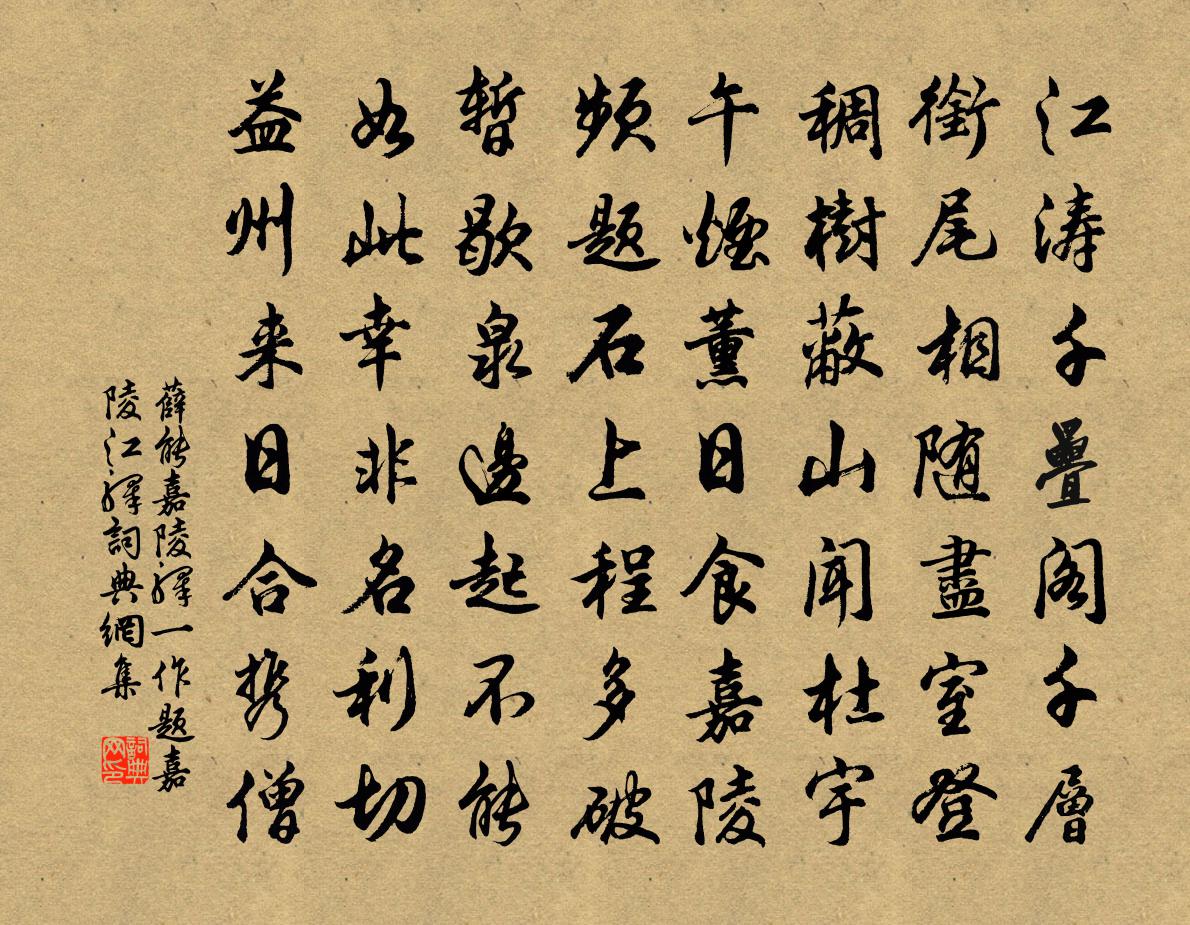 江涛千疊阁千層
銜尾相随盡室登
稠樹蔽山闻杜宇
午煙薰日食嘉陵
频题石上程多破
暫歇泉邊起不能
如此幸非名利切
益州来日合携僧
薛能嘉陵驛一作题嘉
陵江驛詞典網集
詞典
网印